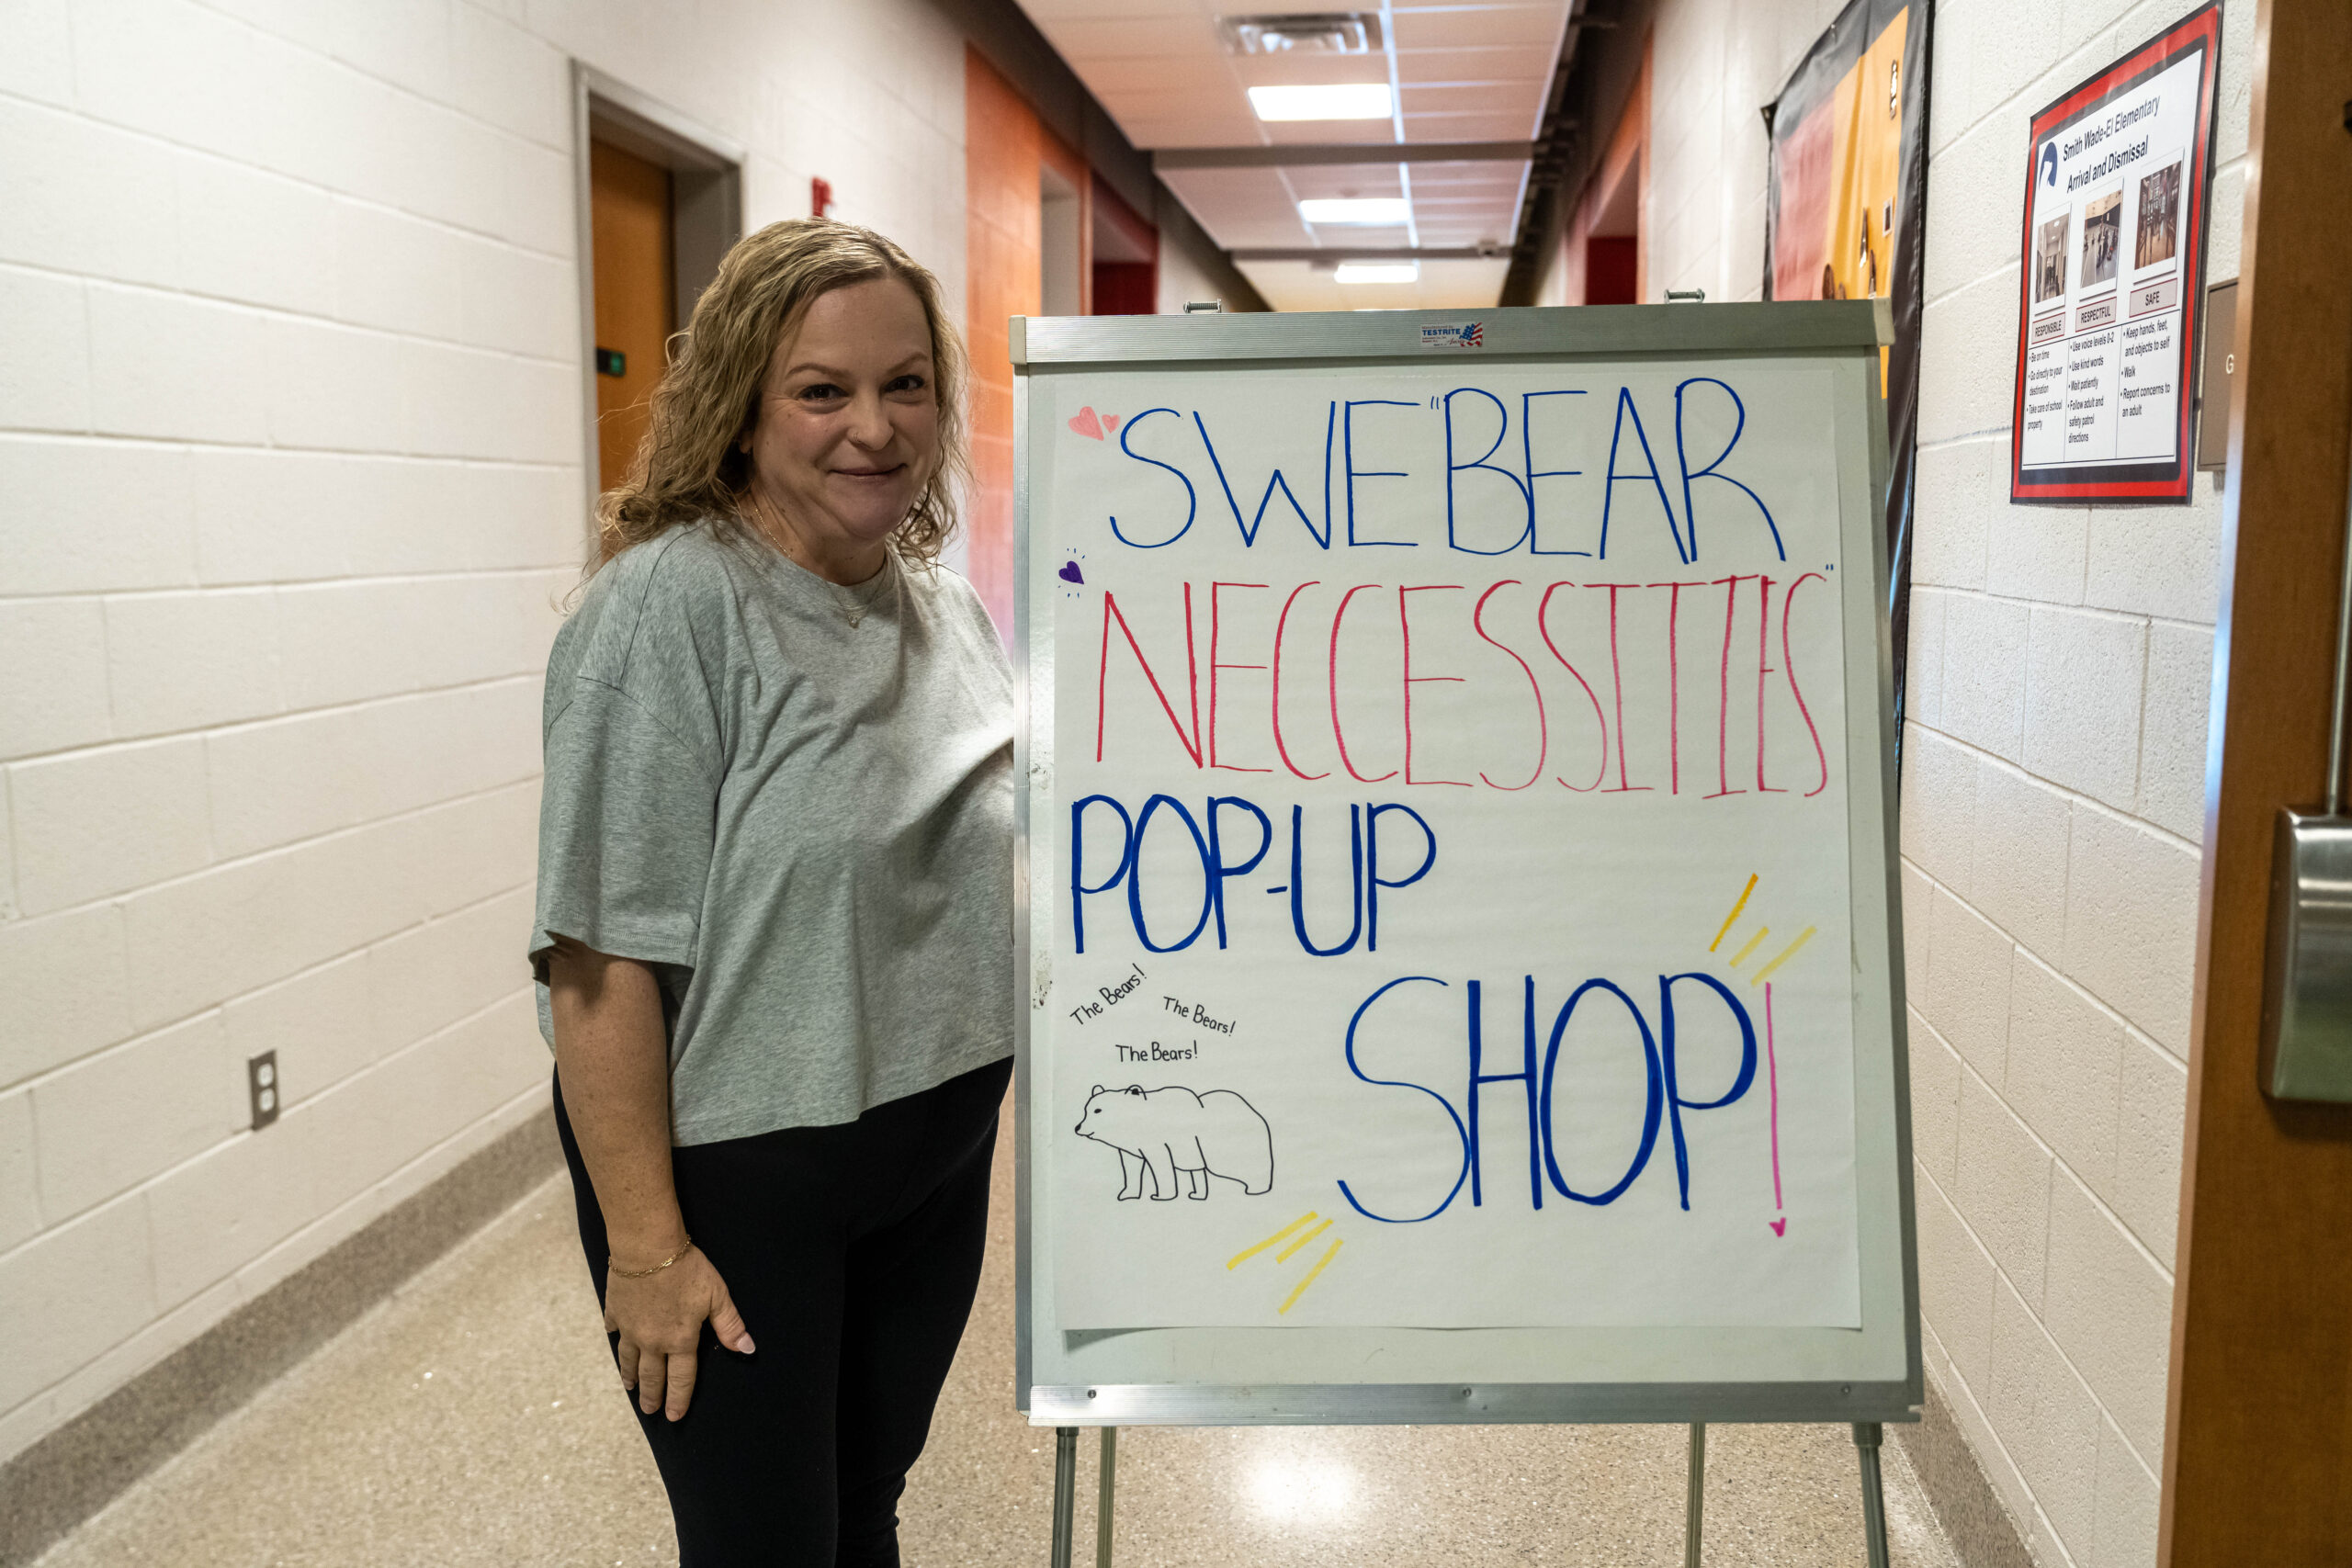 SWE "BEAR
NECCESSITIES"
POP-UP
SHOP!
The Bears!
The Bears!
The Bears!
TESTRITE
Smith Wade-El Elementary
Arrival and Dismissal
RESPONSIBLE
• Be on time
• Go directly to your
destination
• Take care of school
property
RESPECTFUL
• Use voice levels 0-2
• Use kind words
• Wait patiently
• Follow adult and
safety patrol
directions
SAFE
• Keep hands, feet,
and objects to self
• Walk
• Report concerns to
an adult
G